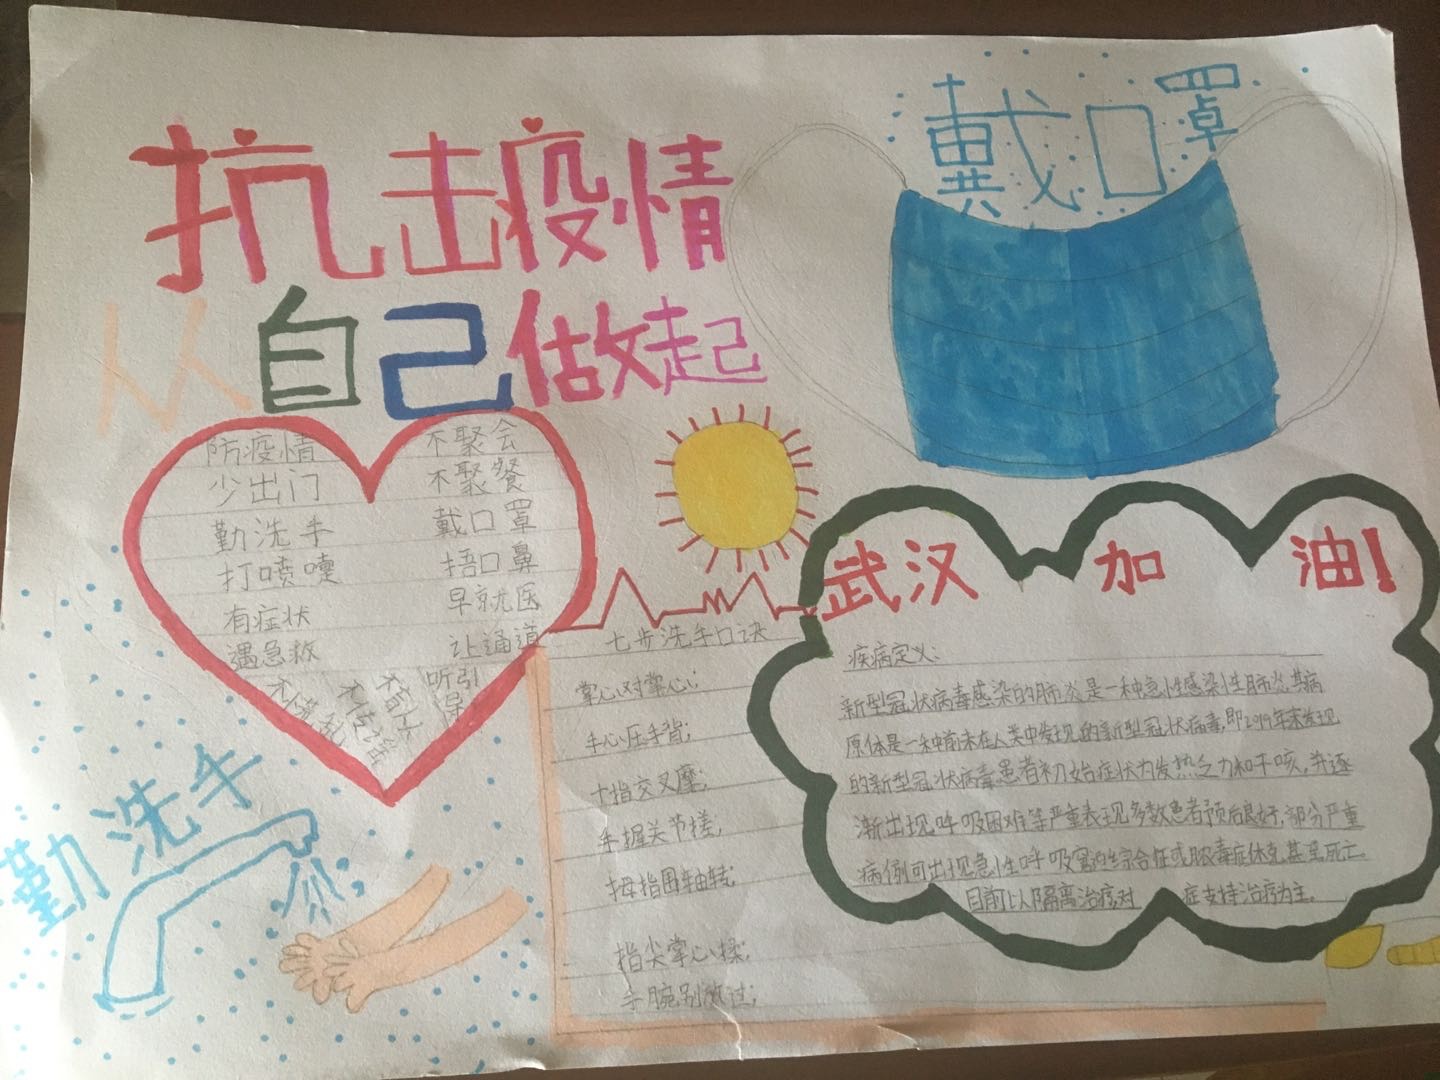 抗击疫情
从自己做起
戴口罩
防疫情 不聚会
少出门 不聚餐
勤洗手 戴口罩
打喷嚏 捂口鼻
有症状 早就医
遇急救 让通道
听引导
勤洗手
七步洗手口诀
掌心对掌心;
手心压手背;
十指交叉摩;
手握关节搓;
拇指围轴转;
指尖掌心揉;
手腕别放过;
武汉 加油!
疾病定义:
新型冠状病毒感染的肺炎是一种急性感染性肺炎其病
原体是一种先前未在人类中发现的新型冠状病毒,即2019年末发现
的新型冠状病毒患者初始症状为发热乏力和干咳,并逐
渐出现呼吸困难等严重表现多数患者预后良好,部分严重
病例可出现急性呼吸窘迫综合征或脓毒症休克甚至死亡
目前以隔离治疗对 症支持治疗为主。